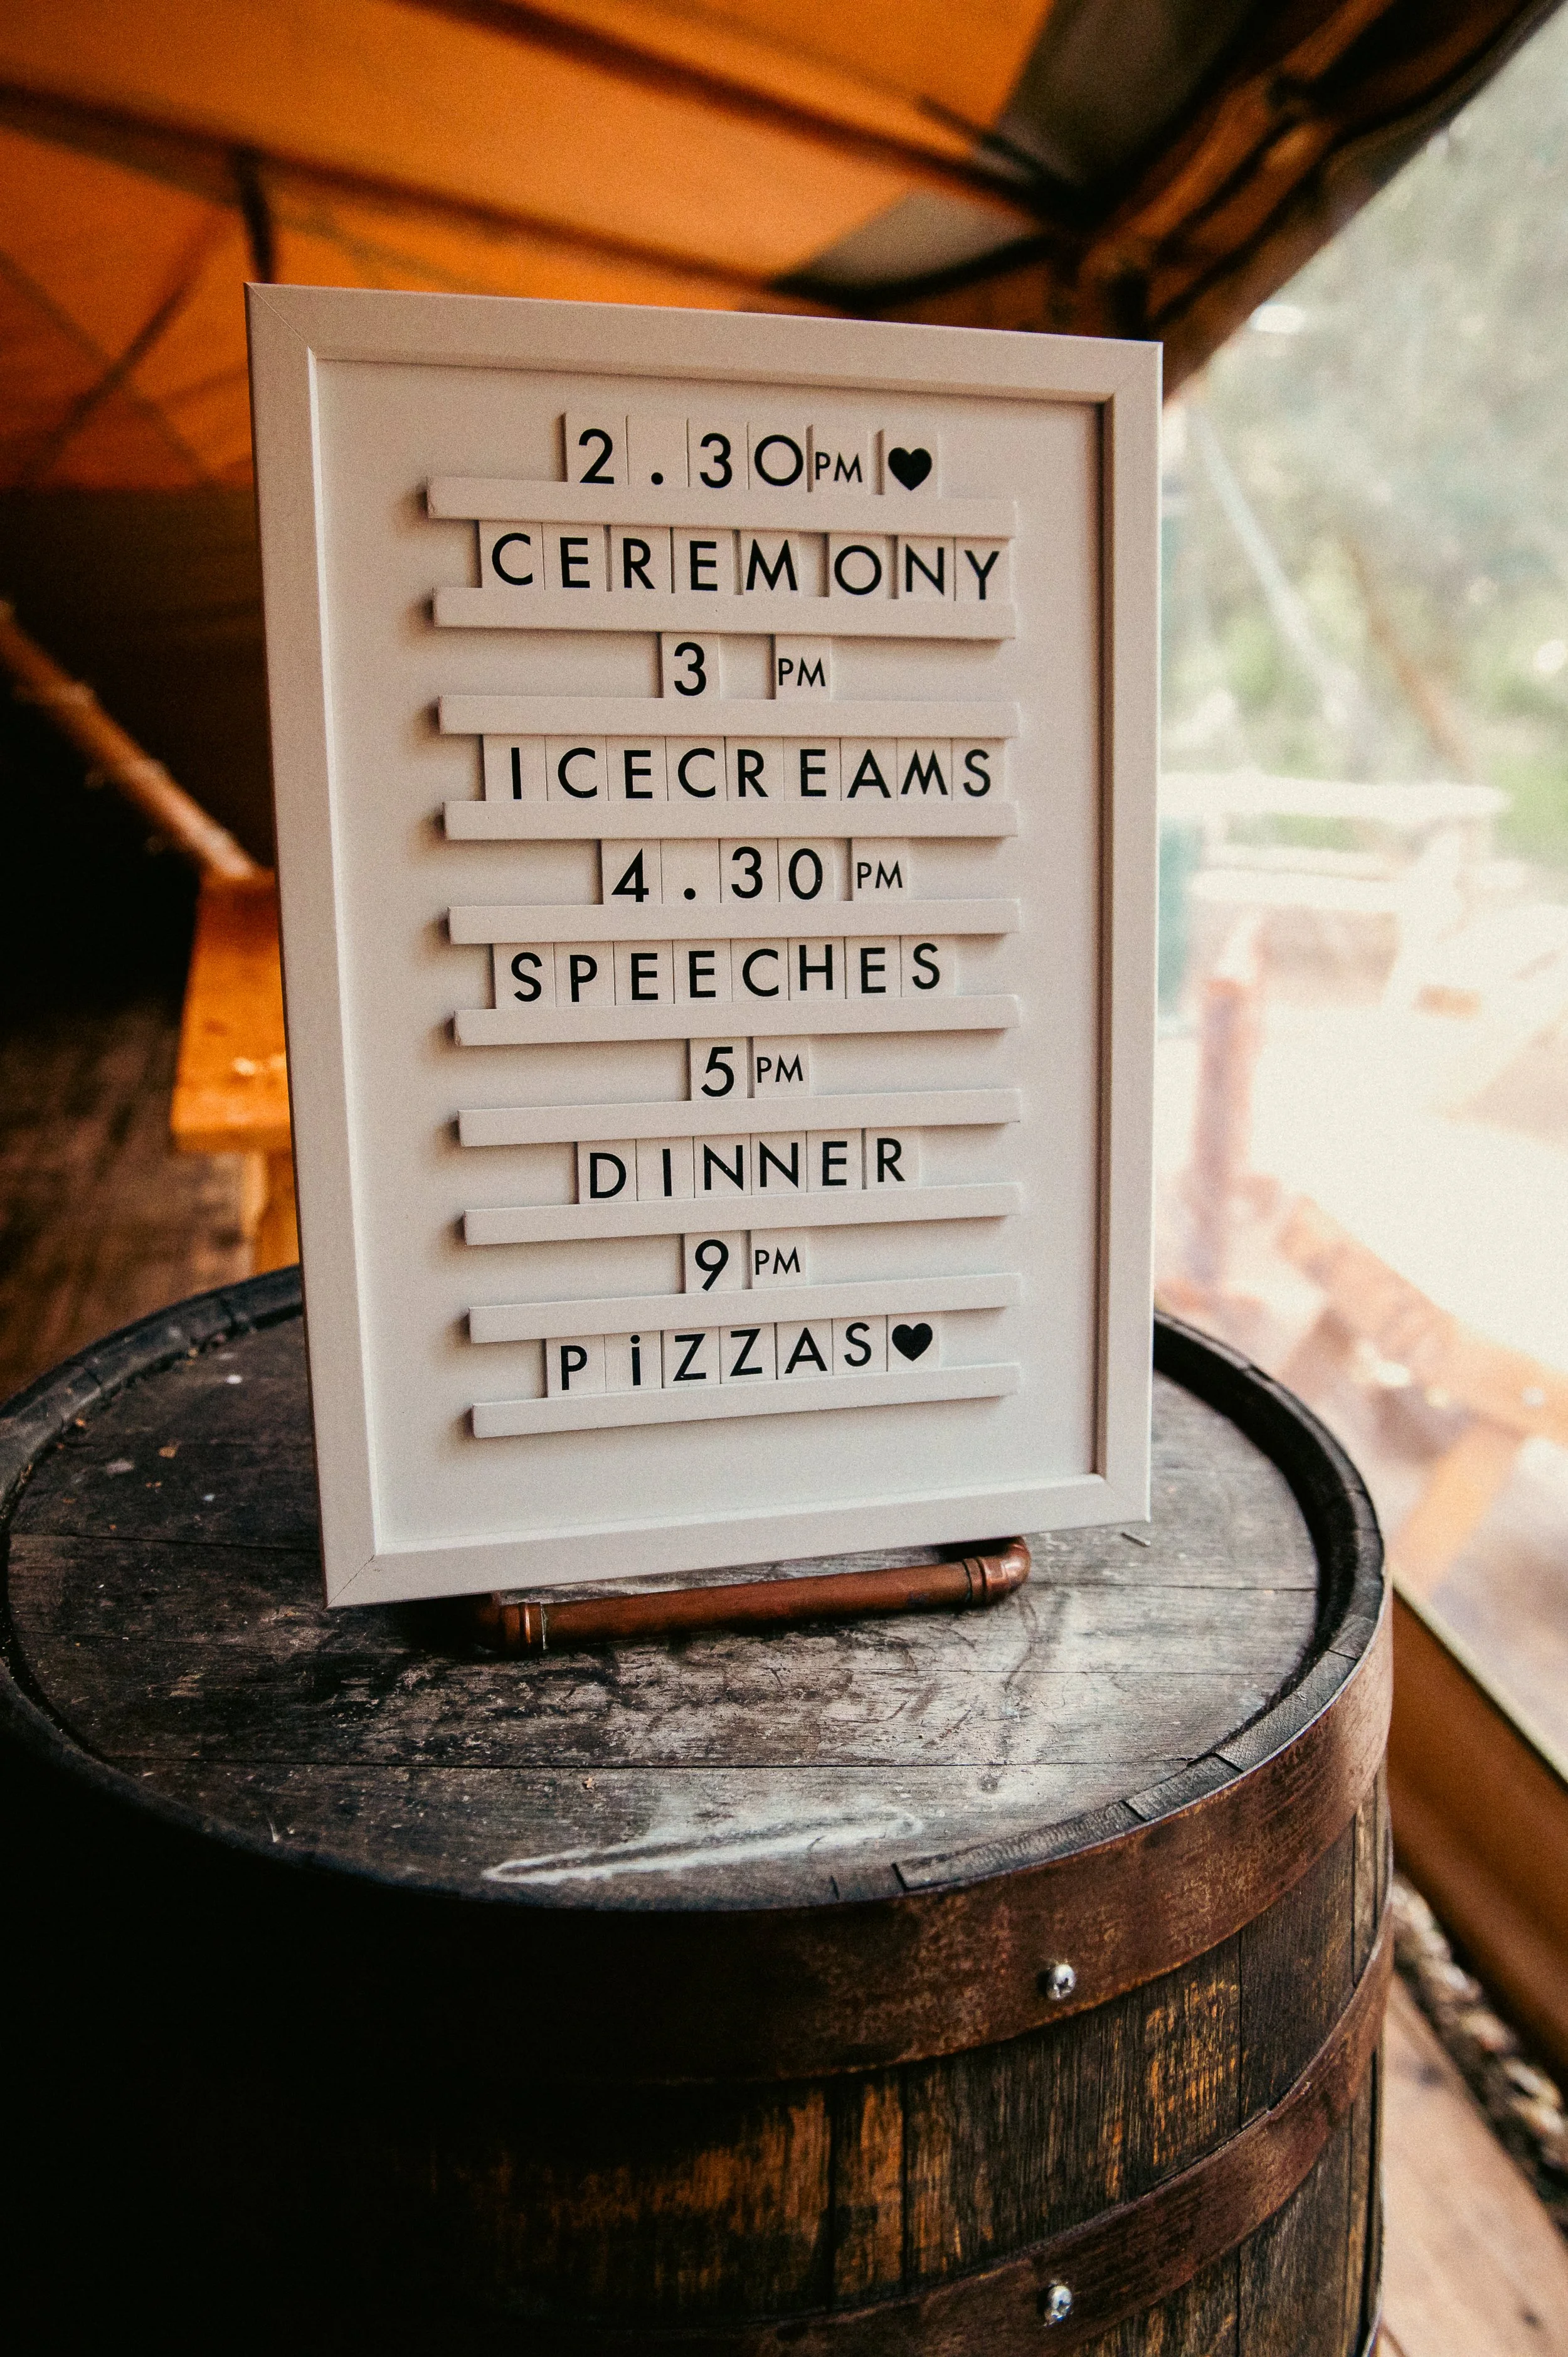 2.30PM ♥
CEREMONY
3 PM
ICECREAMS
4.30 PM
SPEECHES
5PM
DINNER
9PM
PiZZAS♥